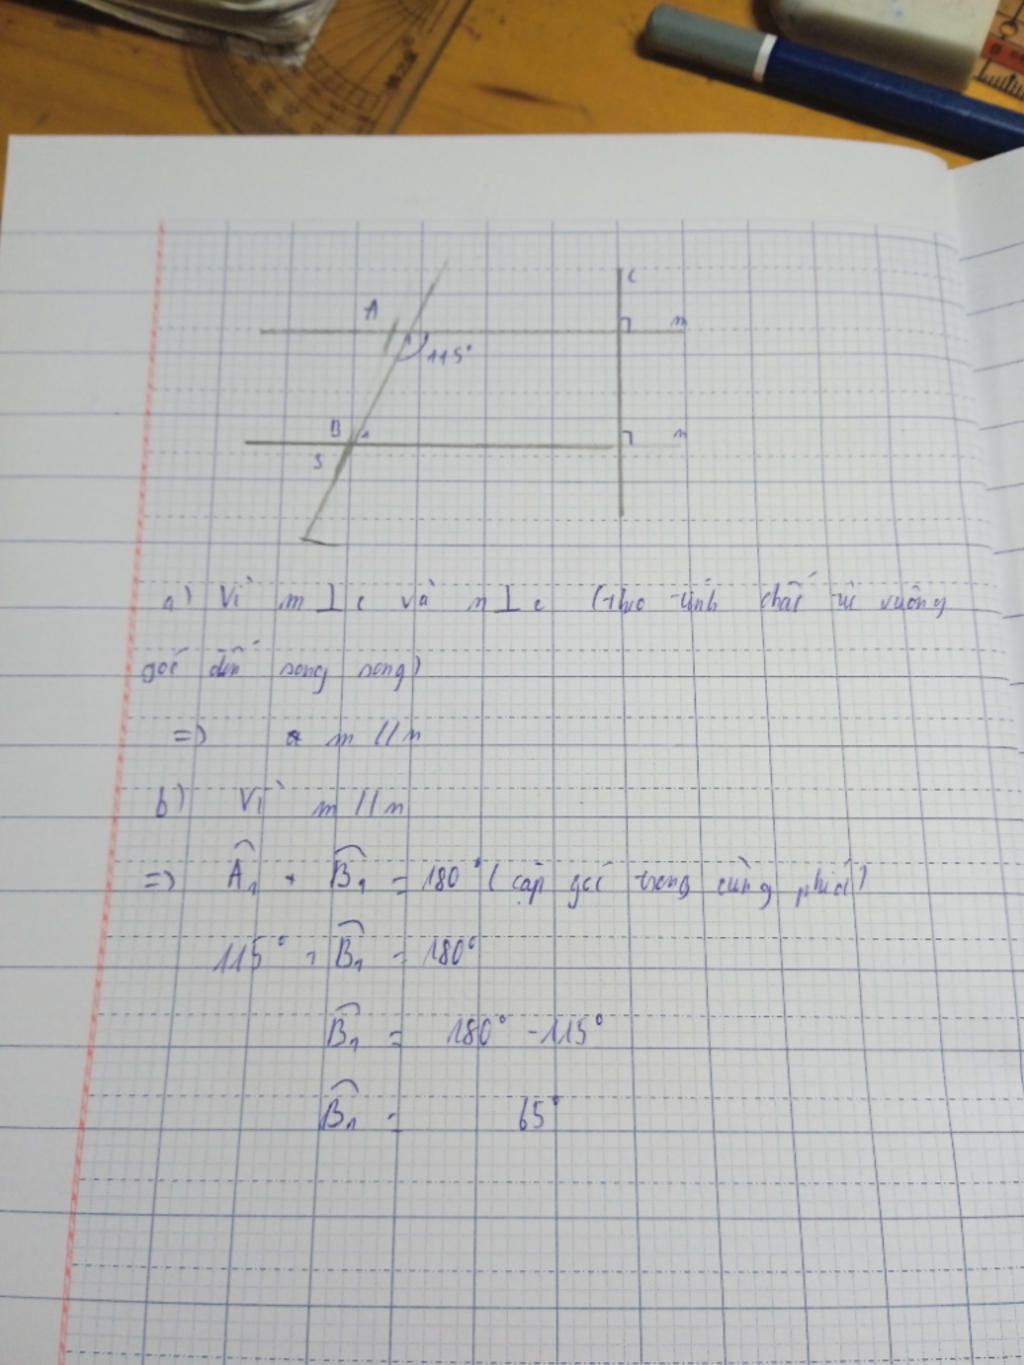 c
A
m
115°
B
n
a) Vì m ⊥ c và n ⊥ c (theo tính chất từ vuông
góc đến song song)
=> m // n
b) Vì m // n
=> Â₁ + B̂₁ = 180° (cặp góc trong cùng phía)
115° + B̂₁ = 180°
B̂₁ = 180° - 115°
B̂₁ = 65°